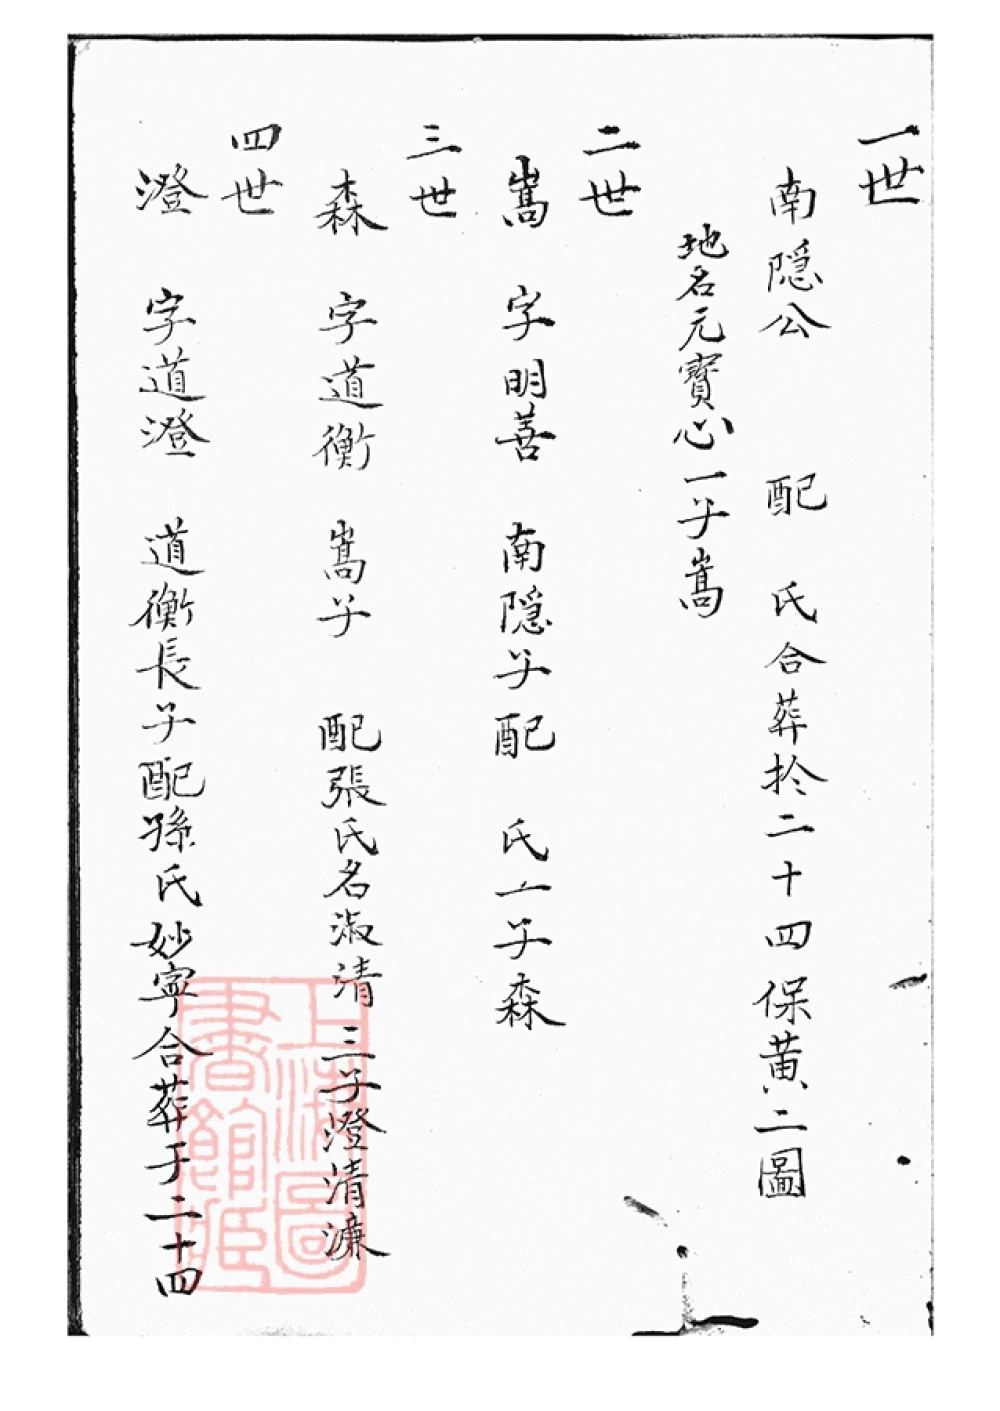 一世
南隱公 配 氏合葬於二十四保黃二圖
地名元寶心一子嵩
二世
嵩 字明善 南隱子配 氏一子森
三世
森 字道衡 嵩子 配張氏名淑清三子澄清濂
四世
澄 字道澄 道衡長子配孫氏妙寧合葬于二十四
上海圖
書館藏